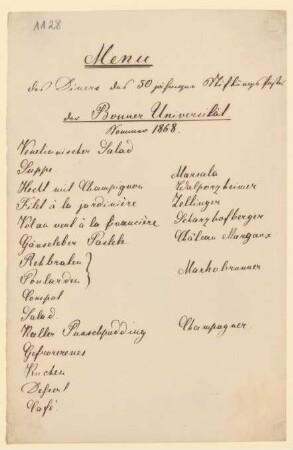 1128
Menu
des Diners des 50 jährigen Stiftungs Festes
der Bonner Universität
Sommer 1868.
Venetianischer Salad
Suppe Marsala
Hecht mit Champignon Walporzheimer
Filet à la jardinière Zeltinger
Vol au vent à la financière Scharzhofberger
Gänseleber Pastete Château Margaux
Rehbraten
Poularden Markobrunner
Compot
Salad.
Kalter Punschpudding Champagner.
Gefrorenes
Kuchen
Dessert
Café